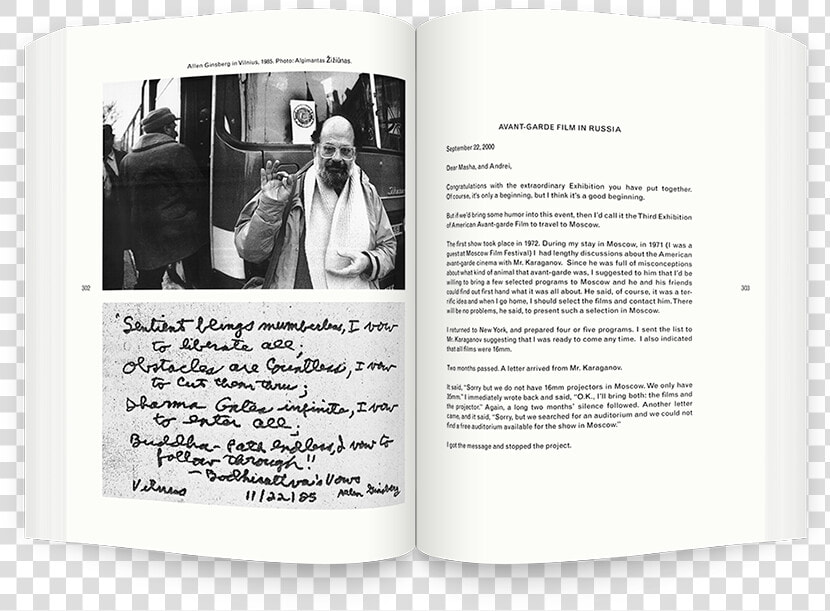 Allen Ginsberg in Vilnius, 1985. Photo: Algimantas Žižiūnas.
302
"Sentient beings numberless, I vow
to liberate all;
Obstacles are Countless, I vow
to Cut them thru;
Dharma Gates infinite, I vow
to enter all;
Buddha-path endless, I vow to
follow through!"
– Bodhisattva's Vows
Vilnius 11/22/85 Allen Ginsberg
AVANT-GARDE FILM IN RUSSIA
September 22, 2000
Dear Masha, and Andrei,
Congratulations with the extraordinary Exhibition you have put together.
Of course, it's only a beginning, but I think it's a good beginning.
But if we'd bring some humor into this event, then I'd call it the Third Exhibition
of American Avant-garde Film to travel to Moscow.
The first show took place in 1972. During my stay in Moscow, in 1971 (I was a
guest at Moscow Film Festival) I had lengthy discussions about the American
avant-garde cinema with Mr. Karaganov. Since he was full of misconceptions
about what kind of animal that avant-garde was, I suggested to him that I'd be
willing to bring a few selected programs to Moscow and he and his friends
could find out first hand what it was all about. He said, of course, it was a ter-
rific idea and when I go home, I should select the films and contact him. There
will be no problems, he said, to present such a selection in Moscow.
I returned to New York, and prepared four or five programs. I sent the list to
Mr. Karaganov suggesting that I was ready to come any time. I also indicated
that all films were 16mm.
Two months passed. A letter arrived from Mr. Karaganov.
It said, "Sorry but we do not have 16mm projectors in Moscow. We only have
35mm." I immediately wrote back and said, "O.K., I'll bring both: the films and
the projector." Again, a long two months' silence followed. Another letter
came, and it said, "Sorry, but we searched for an auditorium and we could not
find a free auditorium available for the show in Moscow."
I got the message and stopped the project.
303